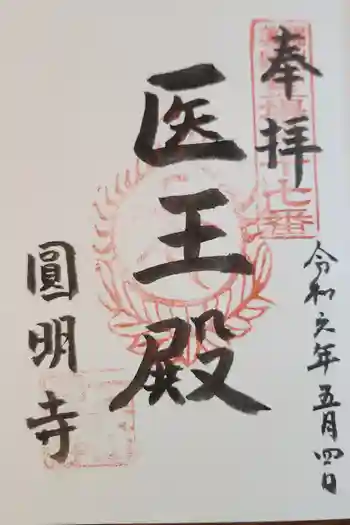 奉拝
令和元年五月四日
医王殿
圓明寺